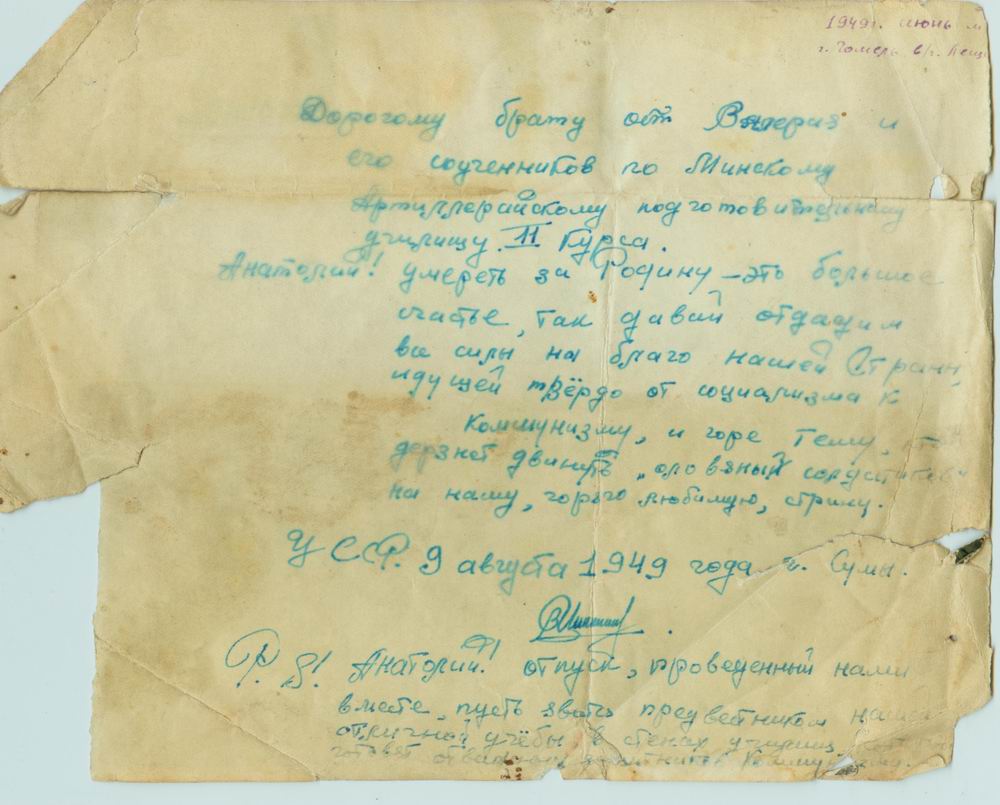 1949г. июнь м
г. Гомель в/г. Лещ
Дорогому брату от Валерия и
его соученников по Минскому
Артиллерийскому подготовительному
училищу II курса.
Анатолий! умереть за Родину – это большое
счастье, так давай отдадим
все силы на благо нашей Страны,
идущей твёрдо от социализма к
коммунизму, и горе тому, кто
дерзнёт двинуть „оловянный солдатиков"
на нашу, горячо любимую, страну.
УССР. 9 августа 1949 года г. Сумы.
P. S! Анатолий! отпуск, проведенный нами
вместе, пусть звать предвестником нашей
отличной учёбы в стенах училищ,
готовят защитников Коммунизму.